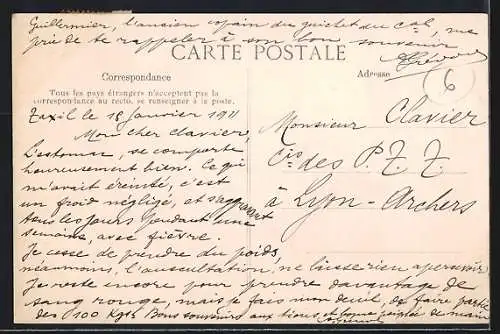 Guillermier, l'ancien copain du guichet du Cal, me
prie de te rappeler à son bon souvenir
CARTE POSTALE
Correspondance
Adresse
6
Tous les pays étrangers n'acceptent pas la
correspondance au recto, se renseigner à la poste.
le 18 Janvier 1911
Mon cher Clavier,
L'estomac, se comporte
heureusement bien. Ce qui
m'avait éreinté, c'est
un froid négligé, et s'aggravant
tous les jours pendant une
semaine, avec fièvre.
Je cesse de prendre du poids,
néanmoins, l'auscultation, ne laisse rien apercevoir
Je reste encore pour prendre davantage de
sang rouge, mais je fais mon deuil, de faire partie
des 100 Kgs. Bons souvenirs aux tiens et bonne poignée de main
Monsieur Clavier
Cis des P.T.T.
à Lyon-Archers